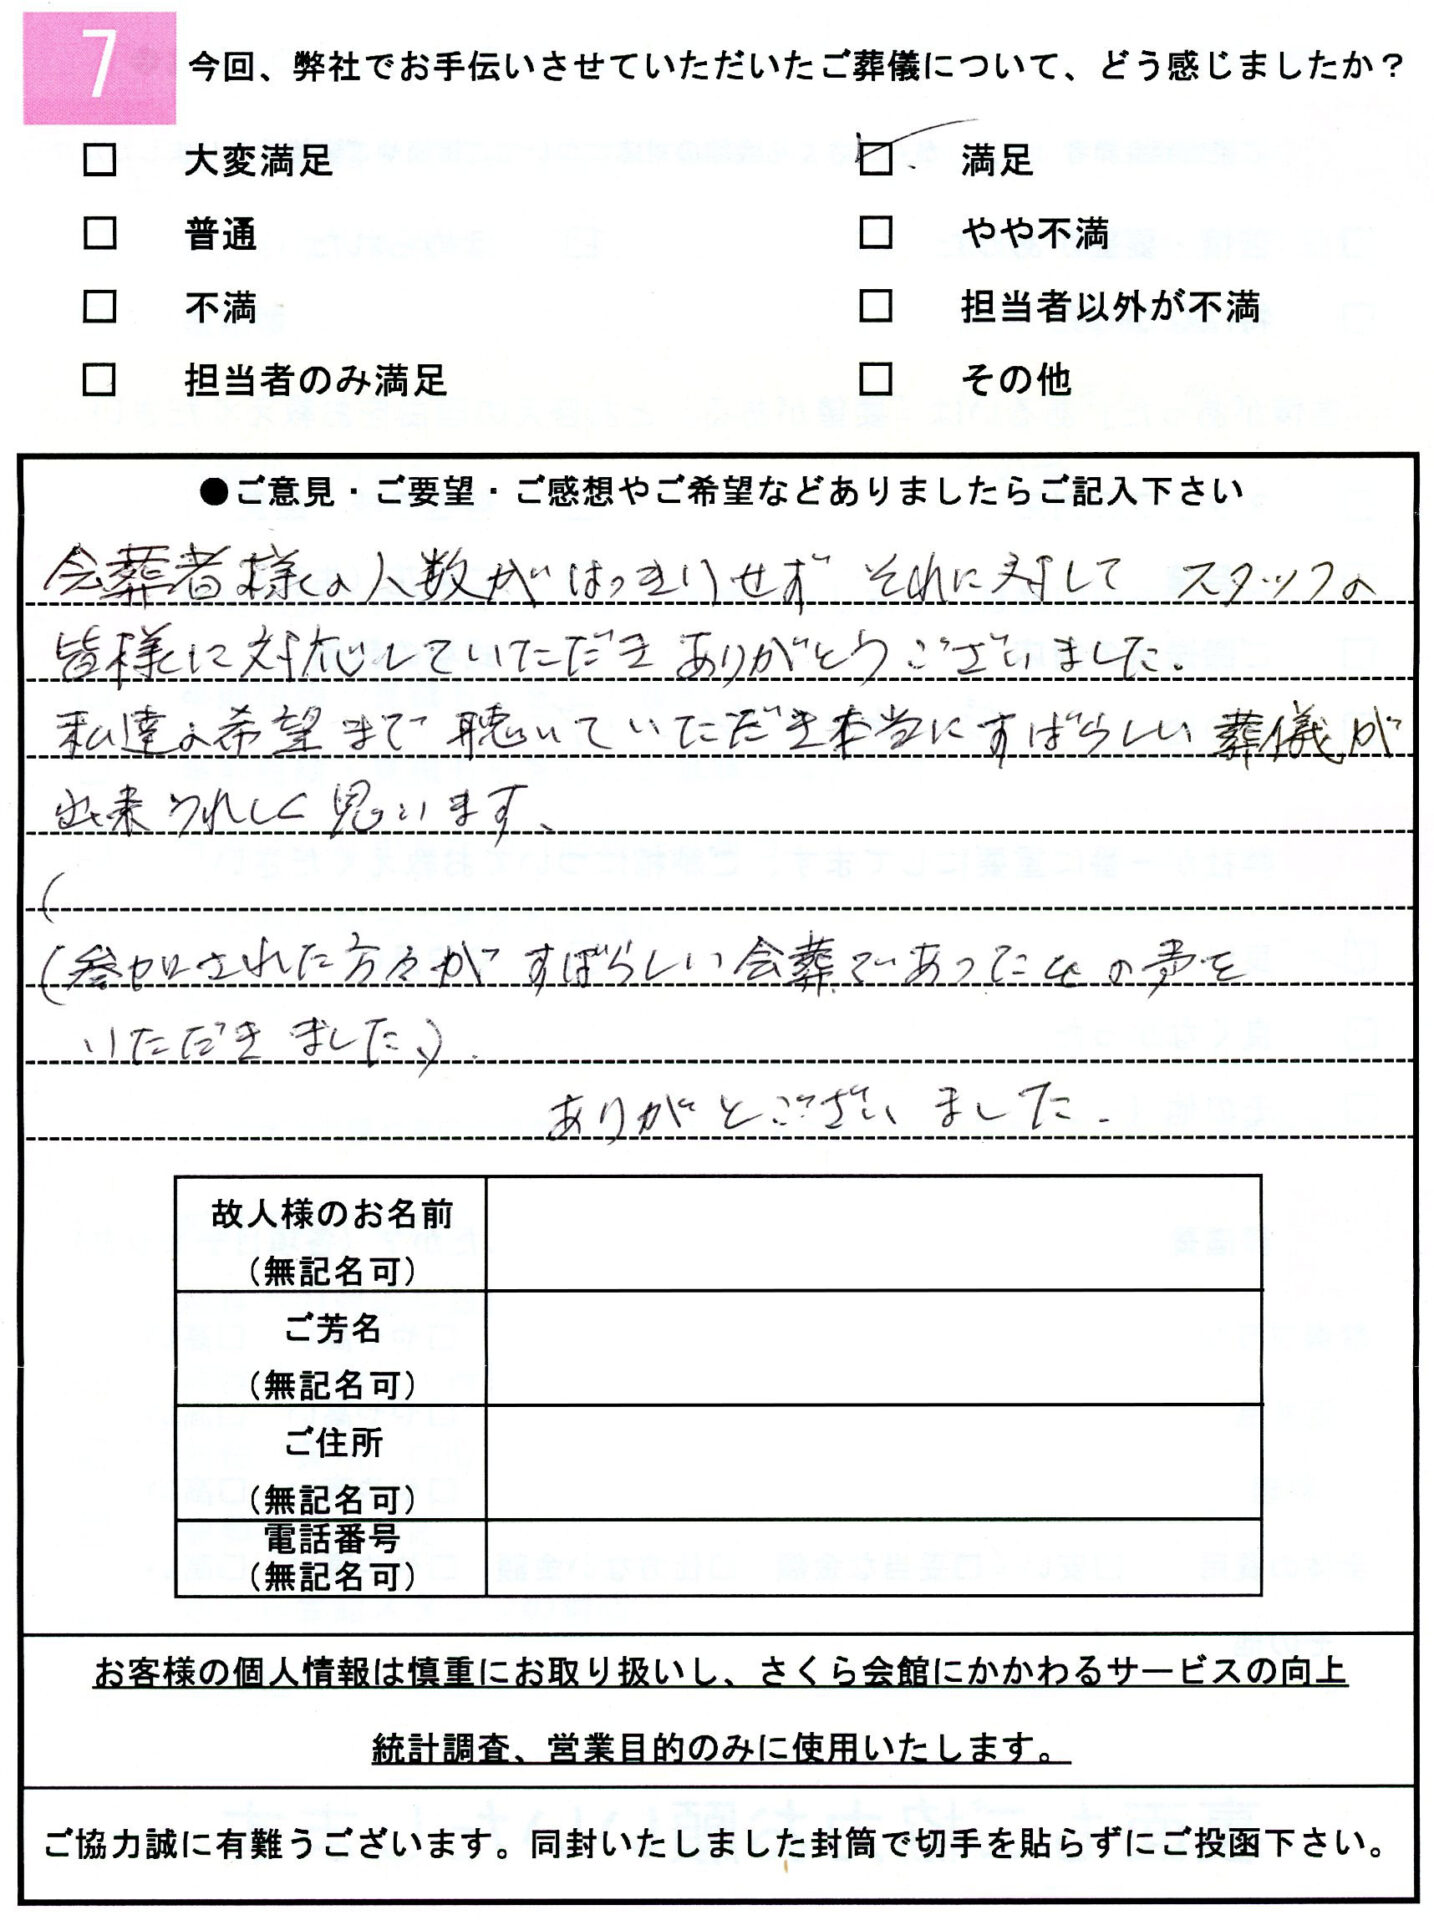 7 今回、弊社でお手伝いさせていただいたご葬儀について、どう感じましたか？
□ 大変満足 ☑ 満足
□ 普通 □ やや不満
□ 不満 □ 担当者以外が不満
□ 担当者のみ満足 □ その他
●ご意見・ご要望・ご感想やご希望などありましたらご記入下さい
会葬者様の人数がはっきりせず それに対して スタッフの
皆様に対応していただき ありがとうございました.
私達の希望まで 聴いていただき本当にすばらしい葬儀が
出来 うれしく思います、
(
(参加された方々が すばらしい会葬であったとの声を
いただきました).
ありがとございました.
故人様のお名前
(無記名可)
ご芳名
(無記名可)
ご住所
(無記名可)
電話番号
(無記名可)
お客様の個人情報は慎重にお取り扱いし、さくら会館にかかわるサービスの向上
統計調査、営業目的のみに使用いたします。
ご協力誠に有難うございます。同封いたしました封筒で切手を貼らずにご投函下さい。